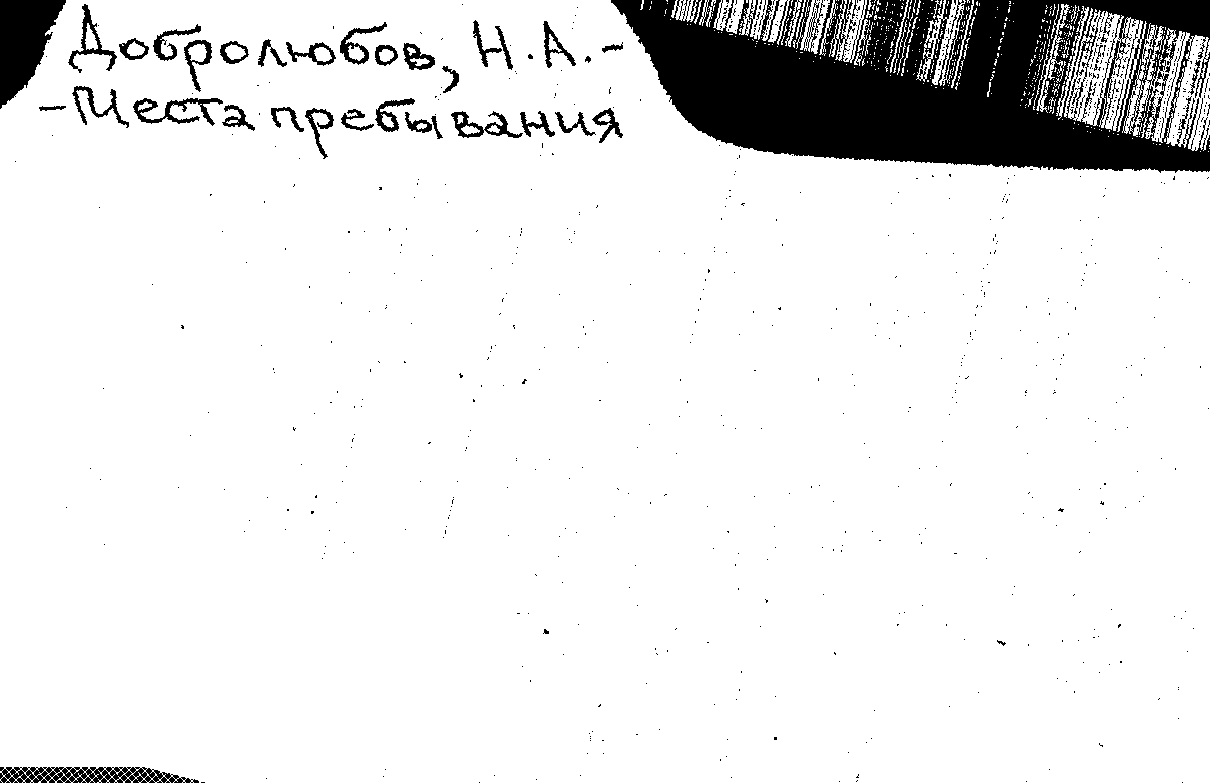 Добролюбов, Н.А.-
-Места пребывания